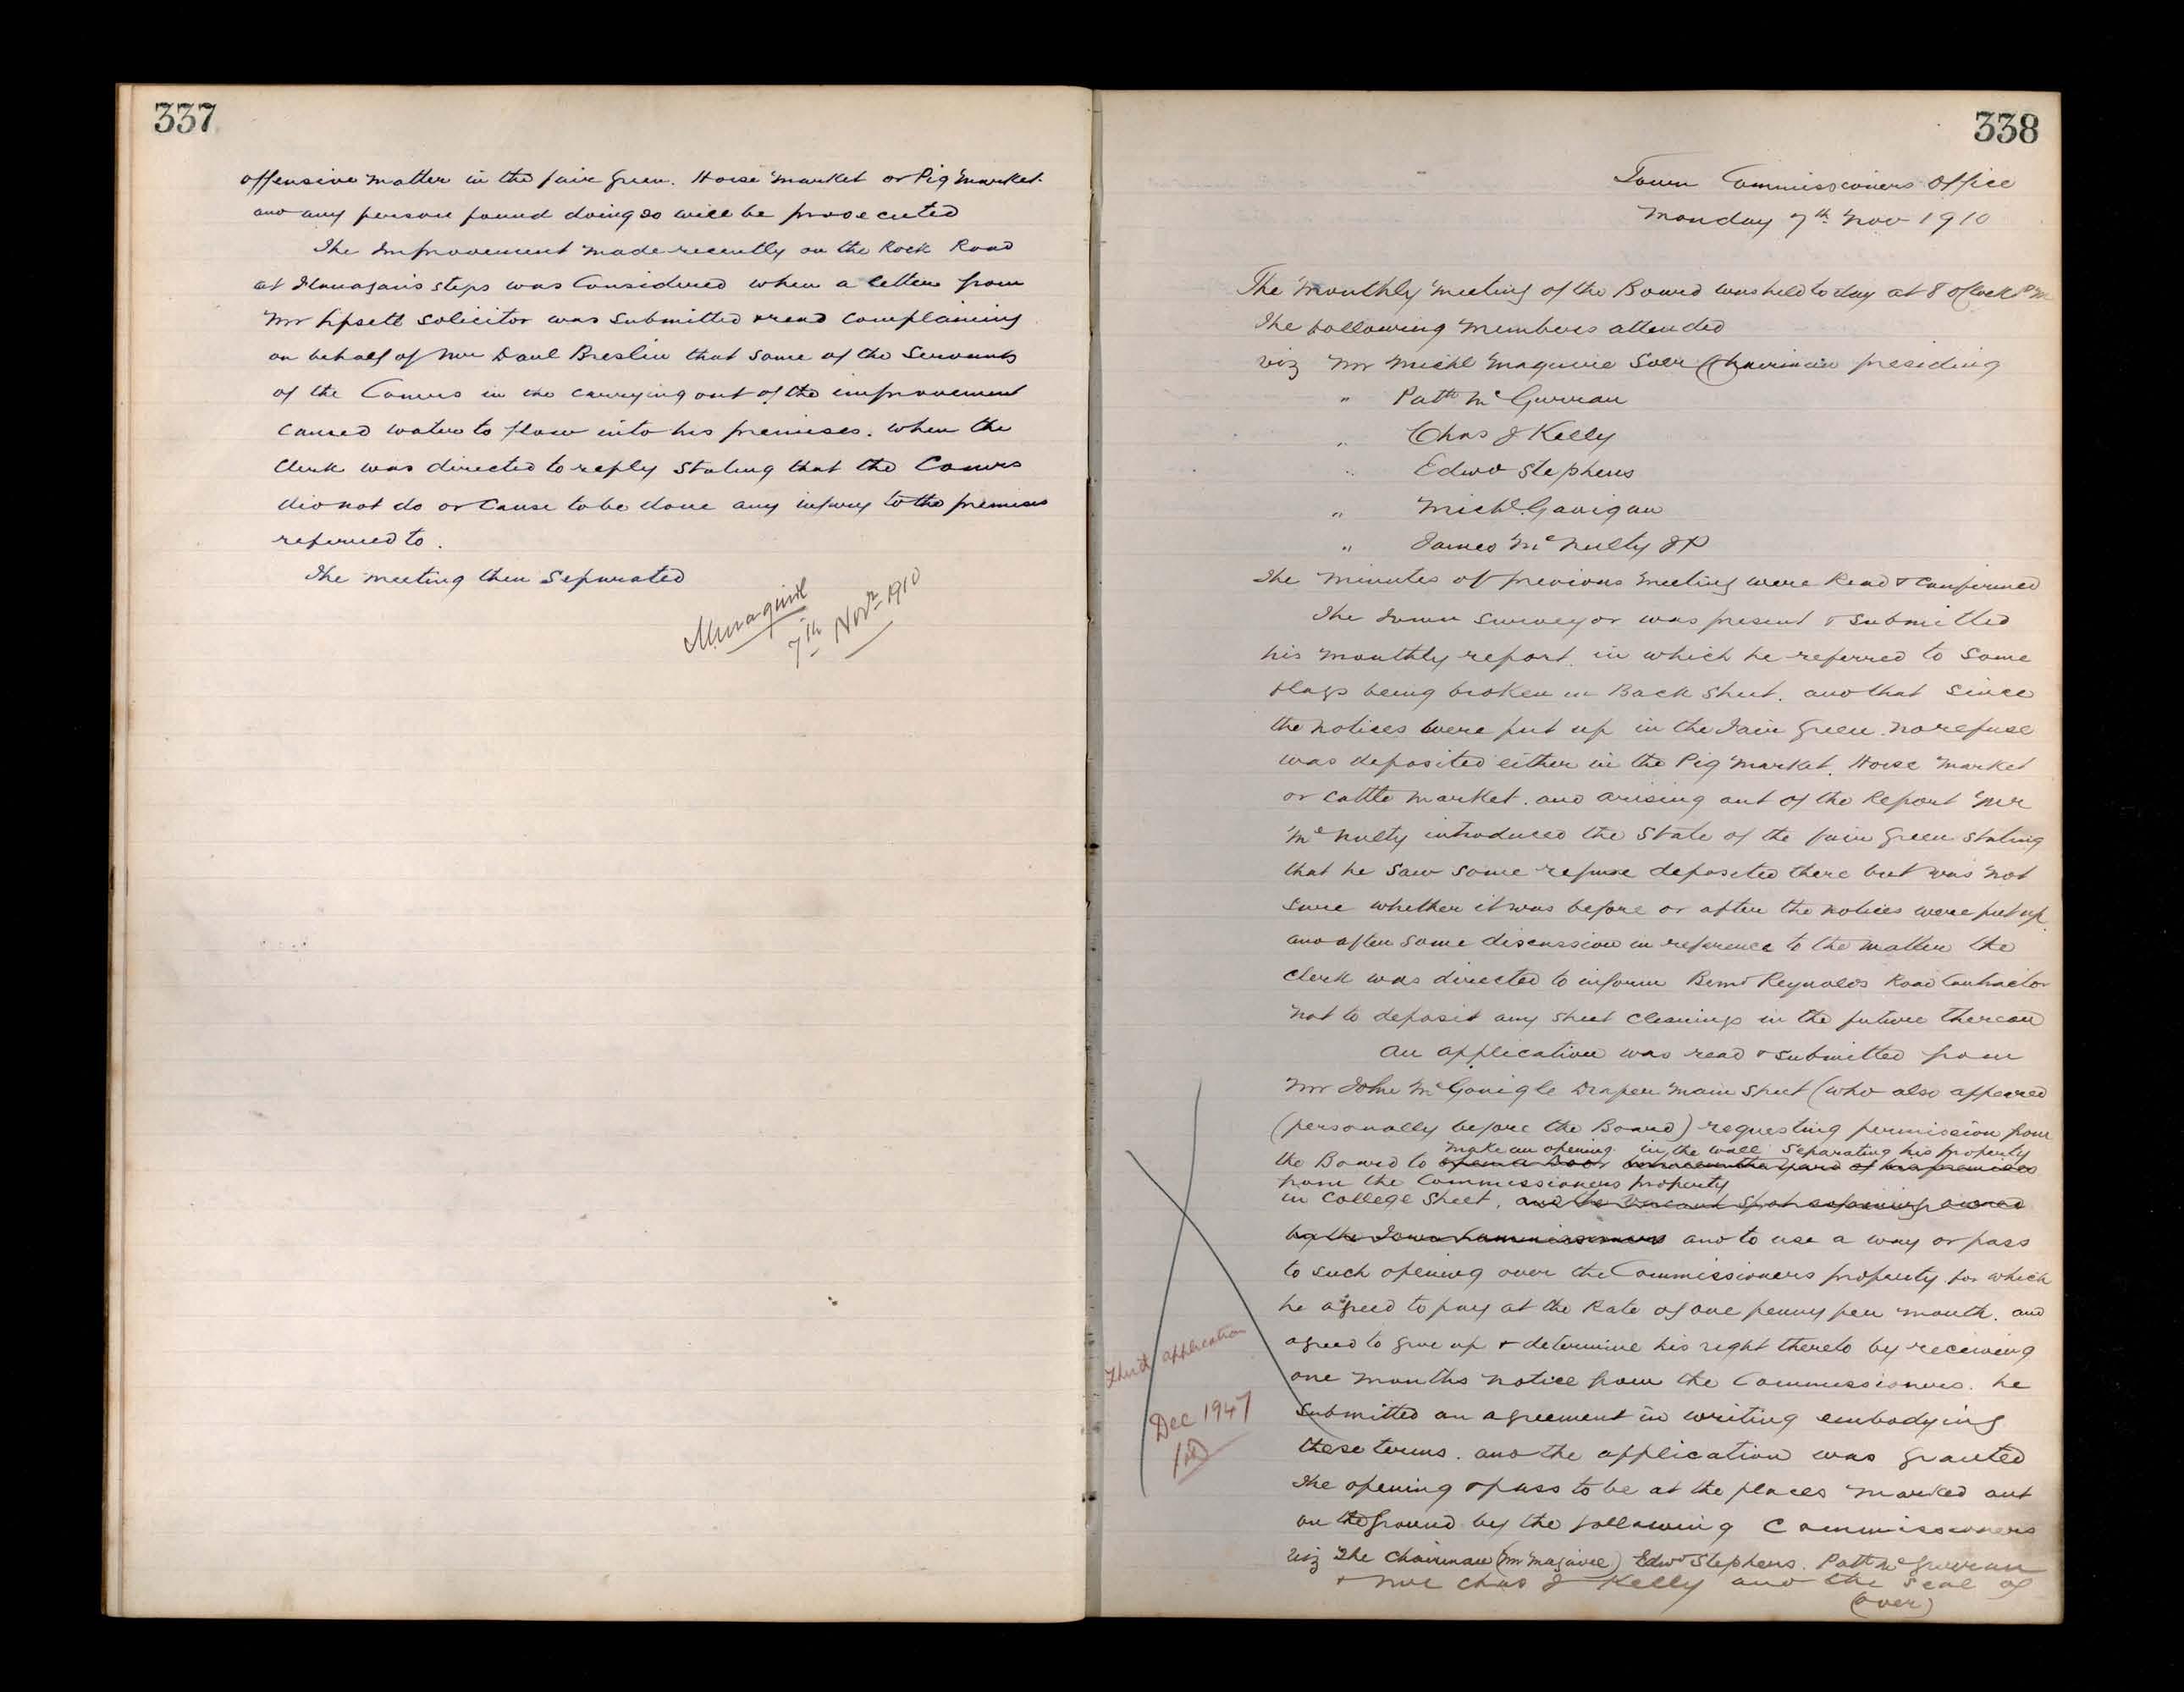 337
offensive matter in the fair Green. Horse Market or Pig Market.
and any person found doing so will be prosecuted
The Improvement made recently on the Rock Road
at Flanagans steps was Considered when a letter from
Mr Lipsett Solicitor was submitted & read Complaining
on behalf of Mr Danl Breslin that some of the Servants
of the Comrs in the carrying out of the improvement
caused water to flow into his premises. When the
Clerk was directed to reply stating that the Comrs
did not do or Cause to be done any injury to the premises
referred to.
The meeting then Separated
M. Maguire
7th Novr 1910
338
Town Commissioners Office
Monday 7th Nov 1910
The Monthly Meeting of the Board was held to day at 8 O'Clock P M
The following Members attended
viz Mr Michl Maguire Solr Chairman presiding
" Patk McGurran
" Chas J Kelly
" Edwd Stephens
" Michl Gavigan
" James McNulty JP
The Minutes of previous Meeting were Read & Confirmed
The Town Surveyor was present & submitted
his Monthly report. in which he referred to some
flags being broken in Back Street. and that since
the notices were put up in the Fair Green. no refuse
was deposited either in the Pig Market. Horse Market
or Cattle Market. and arising out of the Report Mr
McNulty introduced the State of the fair Green stating
that he saw some refuse deposited there but was not
sure whether it was before or after the notices were put up
and after some discussion in reference to the matter the
Clerk was directed to inform Bernd Reynolds Road Contractor
not to deposit any street Cleanings in the future thereon
An application was read & submitted from
Mr John McGonigle Draper Main Street (who also appeared
(personally before the Board) requesting permission from
make an opening in the wall Separating his property
the Board to open a Door between the yard of his premises
from the Commissioners property
in College Street. and the vacant spot adjoining owned
by the Town Commissioners and to use a way or pass
to such opening over the Commissioners property for which
he agreed to pay at the Rate of one penny per month. and
agreed to give up & determine his right thereto by receiving
one months notice from the Commissioners. he
submitted an agreement in writing embodying
these terms. and the application was granted
The opening & pass to be at the places marked out
on the ground by the following Commissioners
viz The Chairman (Mr Maguire) Edwd Stephens. Patk McGurran
& Mr Chas J Kelly and the Seal of
(over)
application
Dec 1947